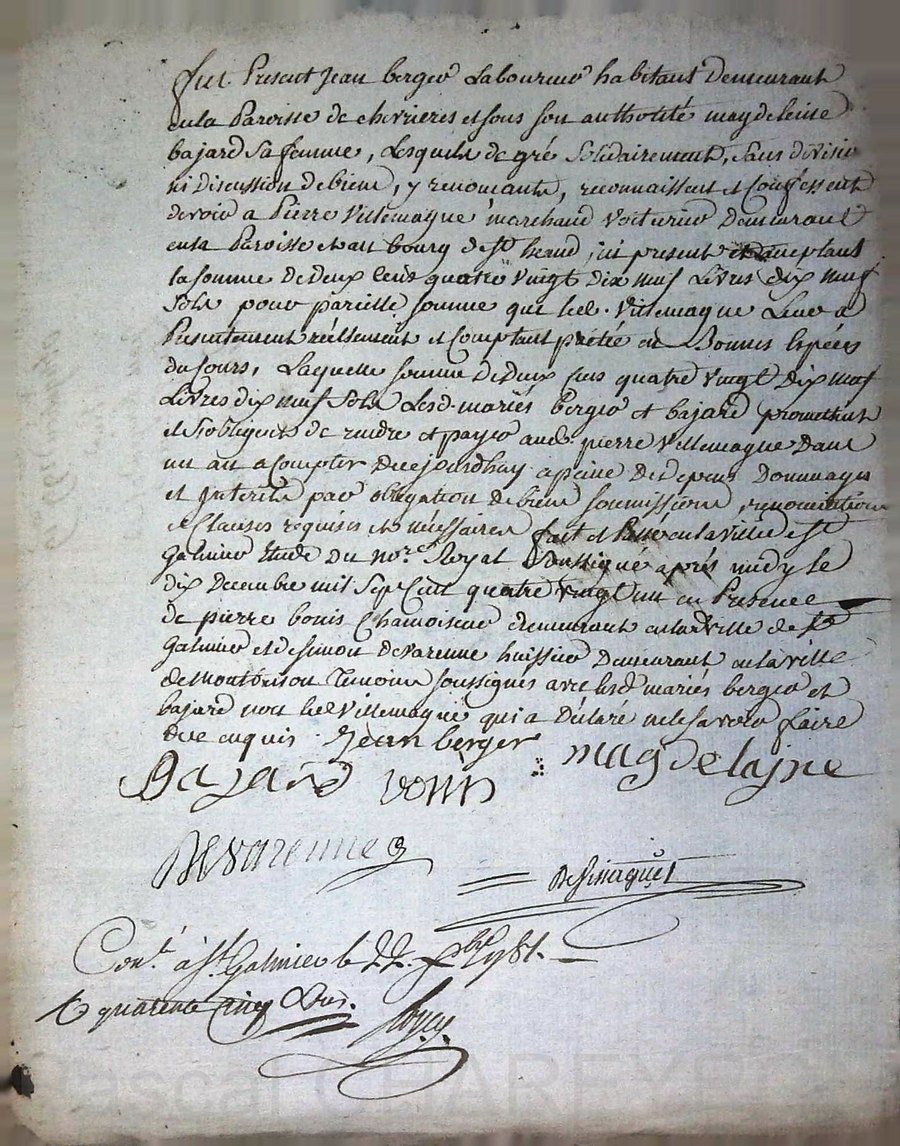 fut Present Jean berger Laboureur habitant Demeurant
en la Paroisse de chevrieres et sous son authorité magdeleine
bajard sa femme, Lesquels de gré solidairement, sans division
ni discussion de biens, y renonçants, reconnaissent et confessent
devoir a Pierre Villemagne marchand voiturier Demeurant
en la Paroisse et au bourg de St heand, ici present et acceptant
la somme de deux cens quatre vingt dix neuf Livres dix neuf
sols pour pareille somme que led. Villemagne Leur a
Presentement réellement et comptant prêtée en Bonnes Espéces
du Cours, Laquelle somme de deux cens quatre vingt dix neuf
Livres dix neuf sols Lesd. mariés berger et bajard promettent
et s'obligent de rendre et payer aud. pierre Villemagne Dans
un an a Compter de cejourdhuy a peine de Depens Dommages
et Interets par obligation de biens soumissions, renonciations
et Clauses requises et nécessaires fait et Passé en la ville de St
galmier Etude du nore. Royal soussigné après midy le
dix Decembre mil sept Cent quatre vingt un en Presence
de pierre bonis Chamoiseur demeurant en lad ville de St
galmier et de simon devarenne huissier Demeurant en la ville
de Montbrison Temoins soussignés avec lesd mariés berger et
bajard non led Villemagne qui a Déclaré ne le savoir faire
de ce enquis. Jean berger
magdelajne
Bajard
Devarenne
Con.t à St. Galmier le 22. xbre 1781.
R quarente cinq sous.